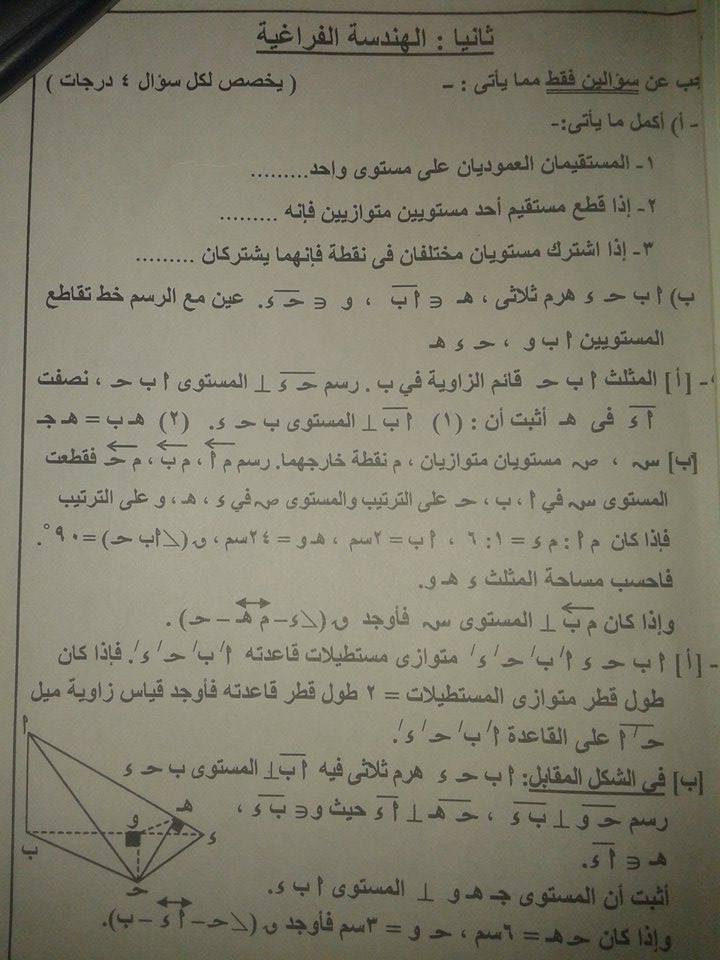 ثانيا : الهندسة الفراغية
جب عن سؤالين فقط مما يأتى : - ( يخصص لكل سؤال ٤ درجات )
- أ) أكمل ما يأتى:-
١- المستقيمان العموديان على مستوى واحد.........
٢- إذا قطع مستقيم أحد مستويين متوازيين فإنه .........
٣- إذا اشترك مستويان مختلفان فى نقطة فإنهما يشتركان .........
ب) أ ب حـ ء هرم ثلاثى ، هـ ∈ أ ب ، و ∈ حـ ء. عين مع الرسم خط تقاطع
المستويين أ ب و ، حـ ء هـ
- [أ] المثلث أ ب حـ قائم الزاوية في ب . رسم حـ ء ⊥ المستوى أ ب حـ ، نصفت
أ ء فى هـ أثبت أن : (١) أ ب ⊥ المستوى ب حـ ء. (٢) هـ ب = هـ جـ
[ب] سہ ، صہ مستويان متوازيان ، م نقطة خارجهما. رسم م أ ، م ب ، م حـ فقطعت
المستوى سہ في أ ، ب ، حـ على الترتيب والمستوى صہ في ء ، هـ ، و على الترتيب
فإذا كان م أ : م ء = ١ : ٦ ، أ ب = ٢سم ، هـ و = ٢٤سم ، ق (∠أ ب حـ) = ٩٠°.
فاحسب مساحة المثلث ء هـ و.
وإذا كان م ب ⊥ المستوى سہ فأوجد ق (∠ء - م هـ - حـ) .
- [أ] أ ب حـ ء أ/ ب/ حـ/ ء/ متوازى مستطيلات قاعدته أ/ ب/ حـ/ ء/. فإذا كان
طول قطر متوازى المستطيلات = ٢ طول قطر قاعدته فأوجد قياس زاوية ميل
حـ/ أ على القاعدة أ/ ب/ حـ/ ء/.
[ب] فى الشكل المقابل: أ ب حـ ء هرم ثلاثى فيه أ ب ⊥ المستوى ب حـ ء
رسم حـ و ⊥ ب ء ، حـ هـ ⊥ أ ء حيث و ∈ ب ء ،
هـ ∈ أ ء.
أثبت أن المستوى جـ هـ و ⊥ المستوى أ ب ء.
وإذا كان حـ هـ = ٦سم ، حـ و = ٣سم فأوجد ق (∠حـ - أ ء - ب).
أ
هـ
و
ء
ب
حـ